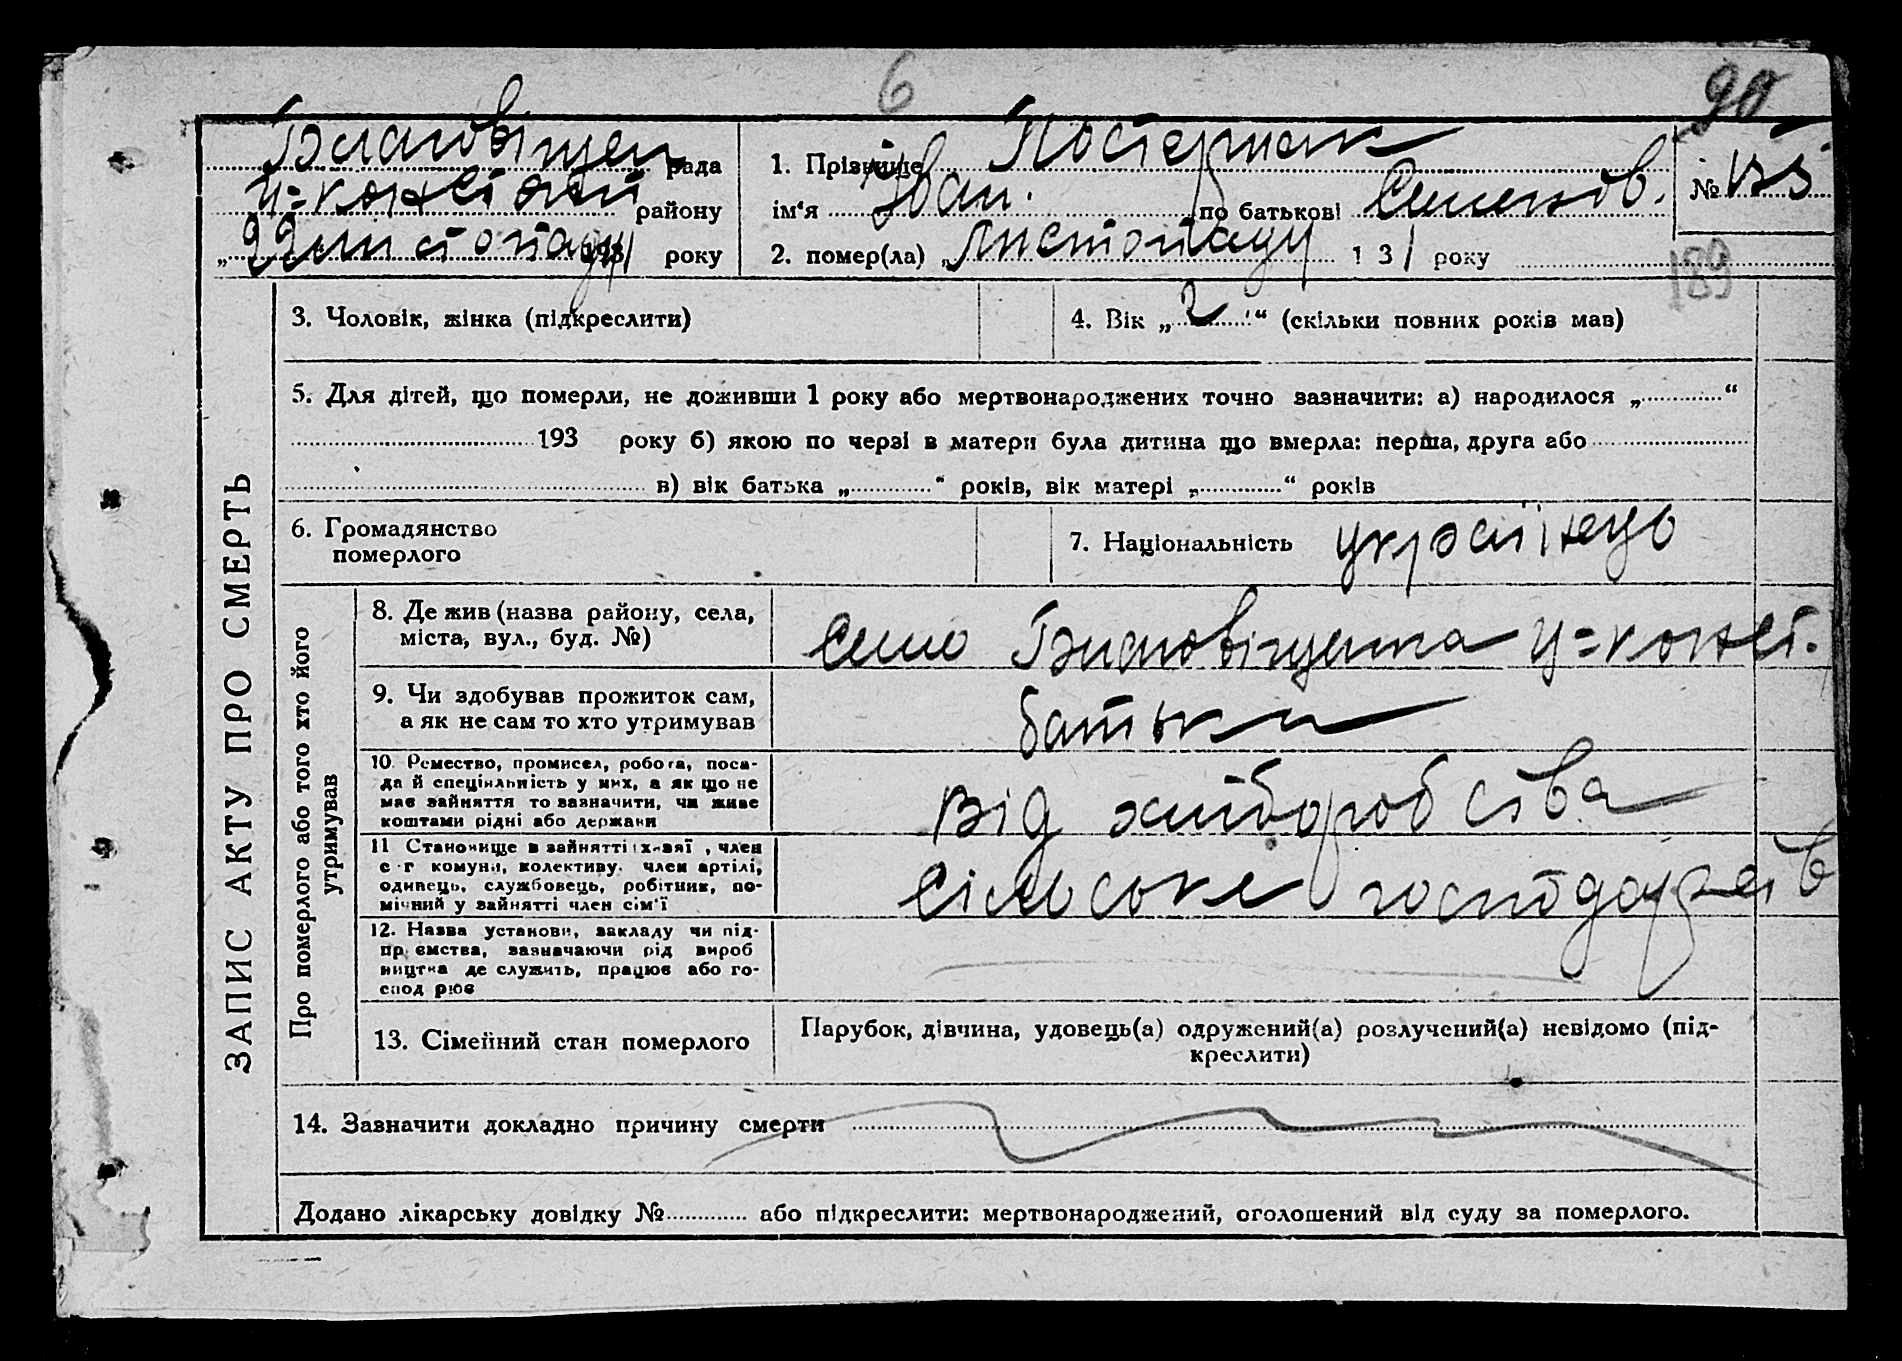 6
90
Благовіщен рада
ц=констант району
„ 22 листопаду 1931 року
1. Прізвище Постернак
ім'я Іван. по батькові Семенов.
2. помер(ла) „ листопаду 1 31 року
№
189
ЗАПИС АКТУ ПРО СМЕРТЬ
3. Чоловік, жінка (підкреслити)
4. Вік „ 2 “ (скільки повних років мав)
5. Для дітей, що померли, не доживши 1 року або мертвонароджених точно зазначити: а) народилося „ “
193 року б) якою по черзі в матери була дитина що вмерла: перша, друга або
в) вік батька „ “ років, вік матері „ “ років
6. Громадянство
померлого
7. Національність українець
Про померлого або того хто його
утримував
8. Де жив (назва району, села,
міста, вул., буд. №)
село Благовіщенка ц=конст.
9. Чи здобував прожиток сам,
а як не сам то хто утримував
батьки
10. Ремество, промисел, робота, поса-
да й спеціяльність у них, а як що не
має зайняття то зазначити, чи живе
коштами рідні або держави
від хліборобства
11 Становище в зайнятті , член
с-г комуни, колективу, член артілі,
одинець, службовець, робітник, по-
мічний у зайнятті член сім'ї
сільське господарств
12. Назва установи, закладу чи під-
приємства, зазначаючи рід вироб
ництва де служить, працює або го-
спод рює
13. Сімейний стан померлого
Парубок, дівчина, удовець(а) одружений(а) розлучений(а) невідомо (під-
креслити)
14. Зазначити докладно причину смерти
Додано лікарську довідку № або підкреслити: мертвонароджений, оголошений від суду за померлого.